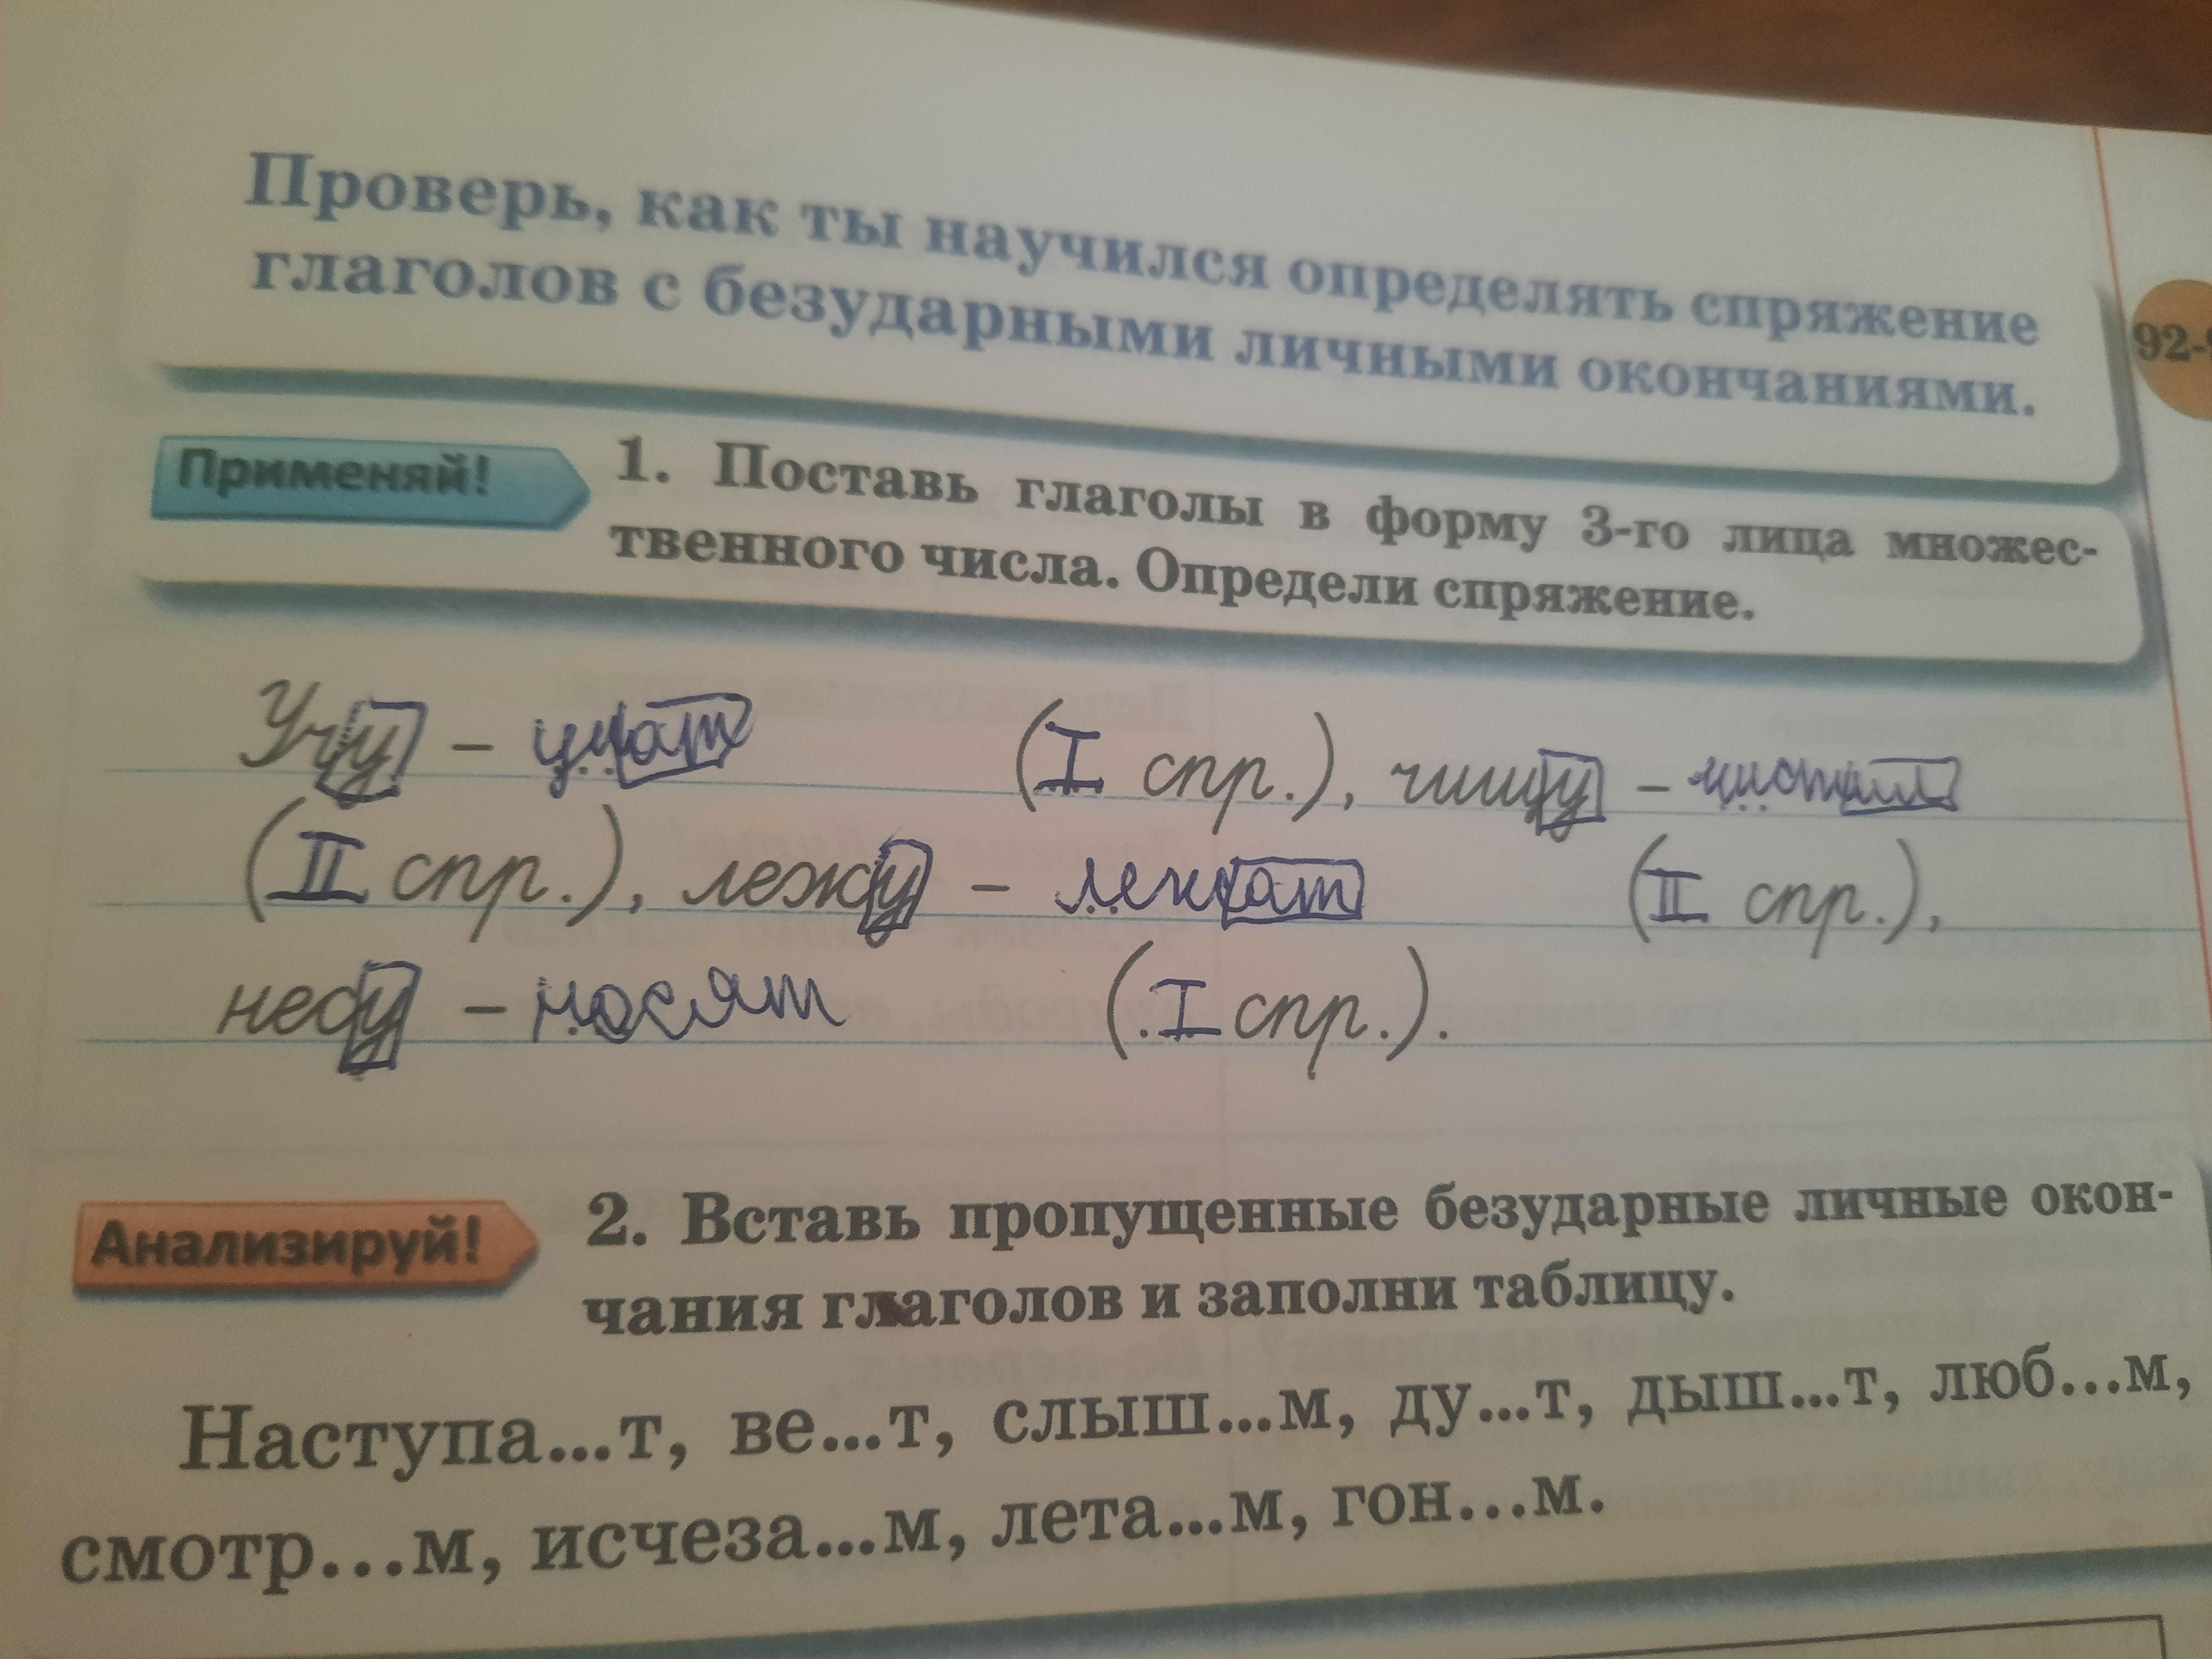 Проверь, как ты научился определять спряжение
глаголов с безударными личными окончаниями.
92-
Применяй!
1. Поставь глаголы в форму 3-го лица множес-
твенного числа. Определи спряжение.
Учу – учат (I спр.), чищу –
(II спр.), лежу – лежат (II спр.),
несу – носят (I спр.).
Анализируй!
2. Вставь пропущенные безударные личные окон-
чания глаголов и заполни таблицу.
Наступа...т, ве...т, слыш...м, ду...т, дыш...т, люб...м,
смотр...м, исчеза...м, лета...м, гон...м.